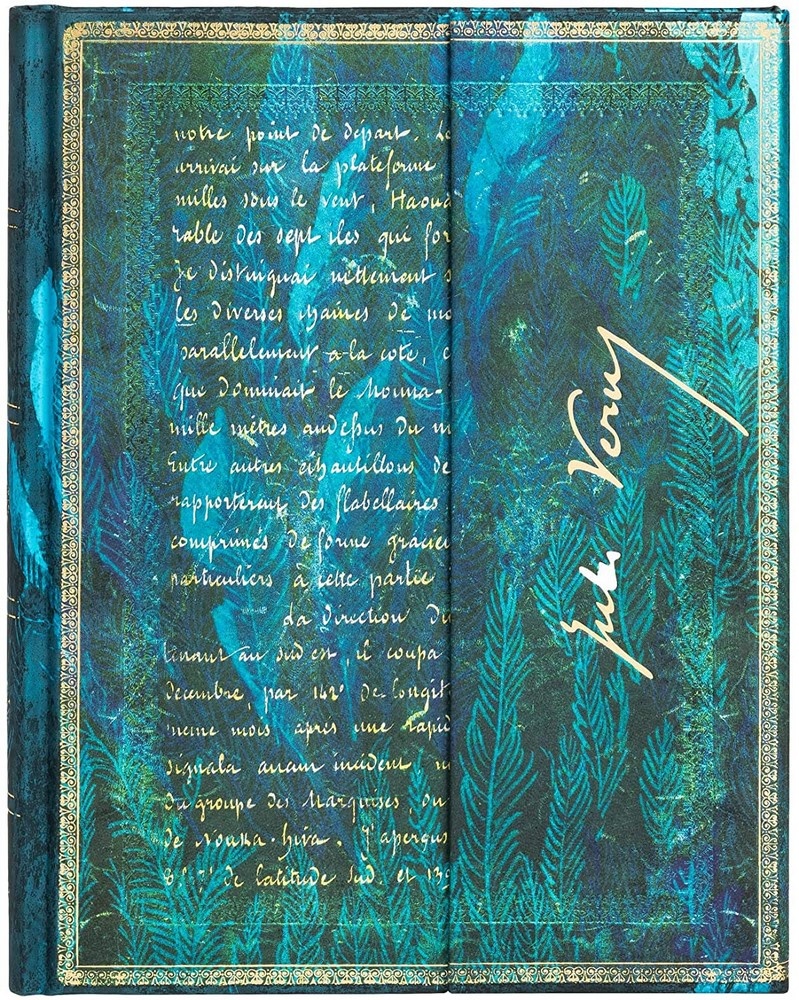 notre point de départ. Le
arrivai sur la plateforme
milles sous le vent, Haoua
rable des sept iles qui for
Je distinguai nettement
les diverses chaines de mo
parallelement a la cote, c
que dominait le Mouna-
mille mètres audessus du n
Entre autres échantillons de
rapporterent des flabellaires
comprimés de forme gracieu
particuliers à cette partie
La direction du
tenant au sud est, il coupa
décembre, par 142° de longit
meme mois après une rapid
signala aucun incident
du groupe des Marquises, ou
de Nouka-hiva. J'aperçus
8° 7' de latitude sud, et 139
Jules Verne